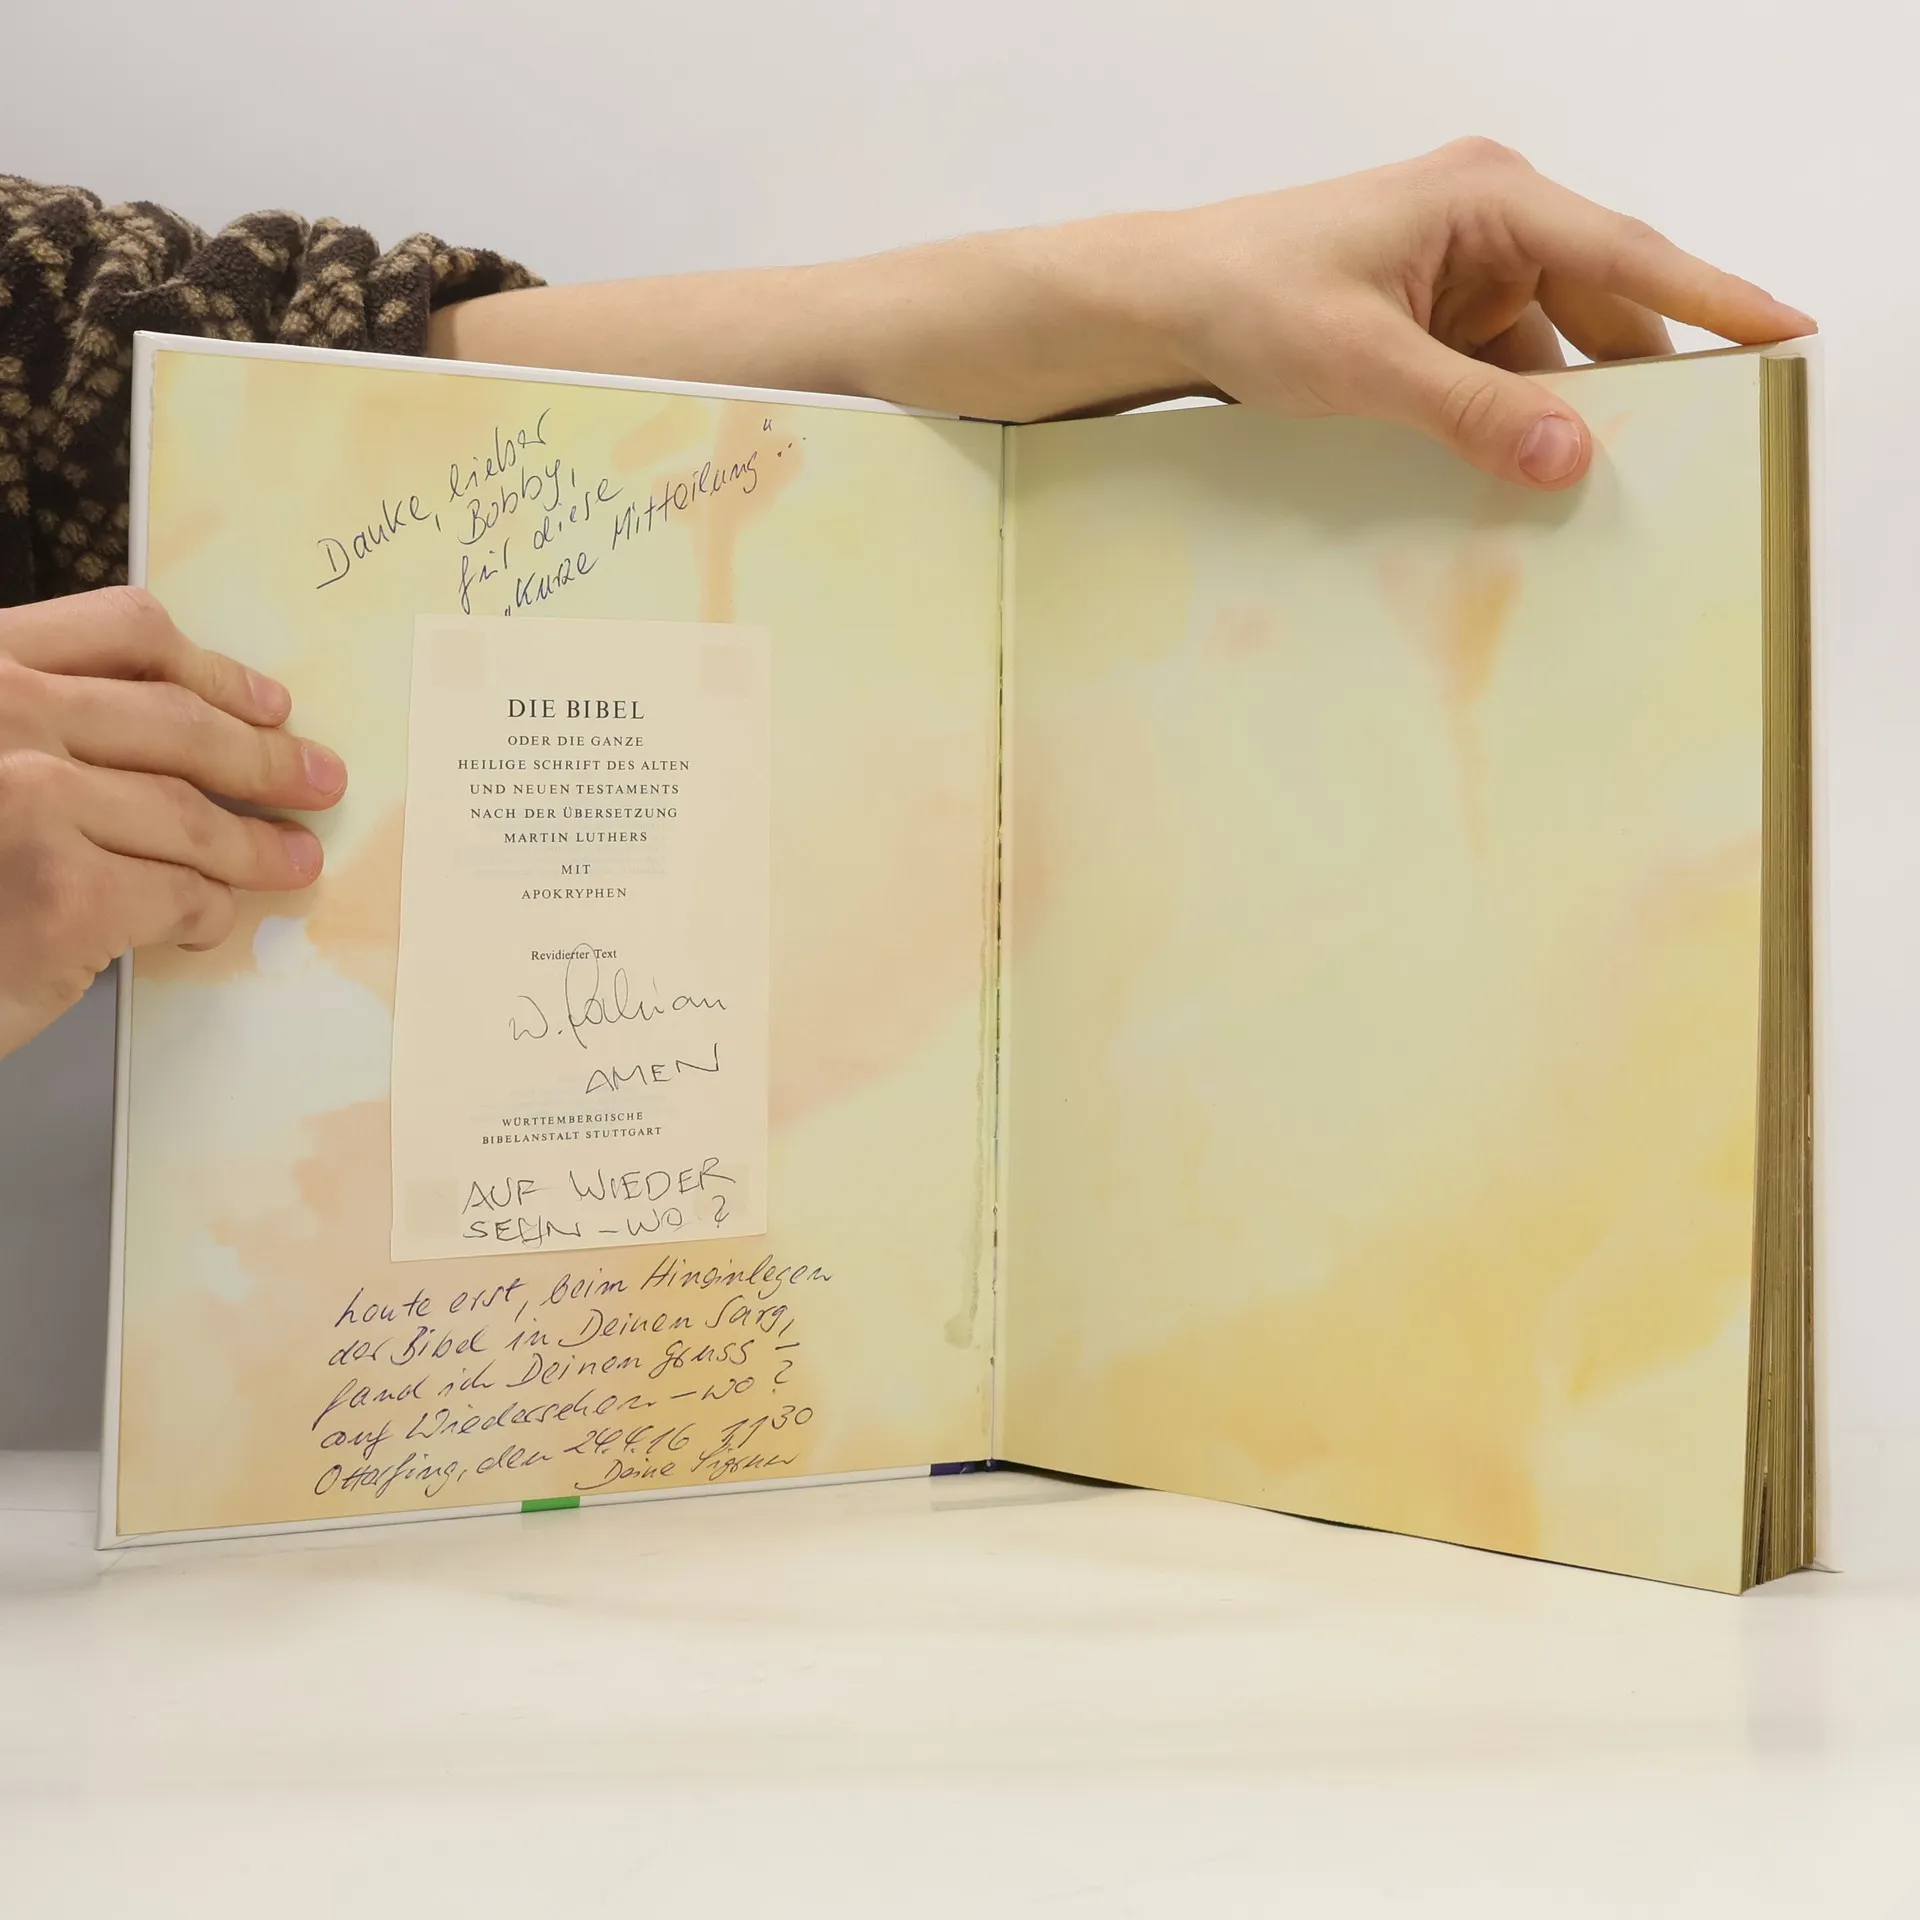 Danke, lieber
Bobby,
für diese
„Kurze Mitteilung"...
DIE BIBEL
ODER DIE GANZE
HEILIGE SCHRIFT DES ALTEN
UND NEUEN TESTAMENTS
NACH DER ÜBERSETZUNG
MARTIN LUTHERS
MIT
APOKRYPHEN
Revidierter Text
W.
AMEN
WÜRTTEMBERGISCHE
BIBELANSTALT STUTTGART
AUF WIEDER
SEHN - WO ?
heute erst, beim Hineinlegen
der Bibel in Deinen Sarg,
fand ich Deinen Gruss -
auf Wiedersehen - wo ?
Otterfing, den 24.4.16 11 30
Deine Sigrun